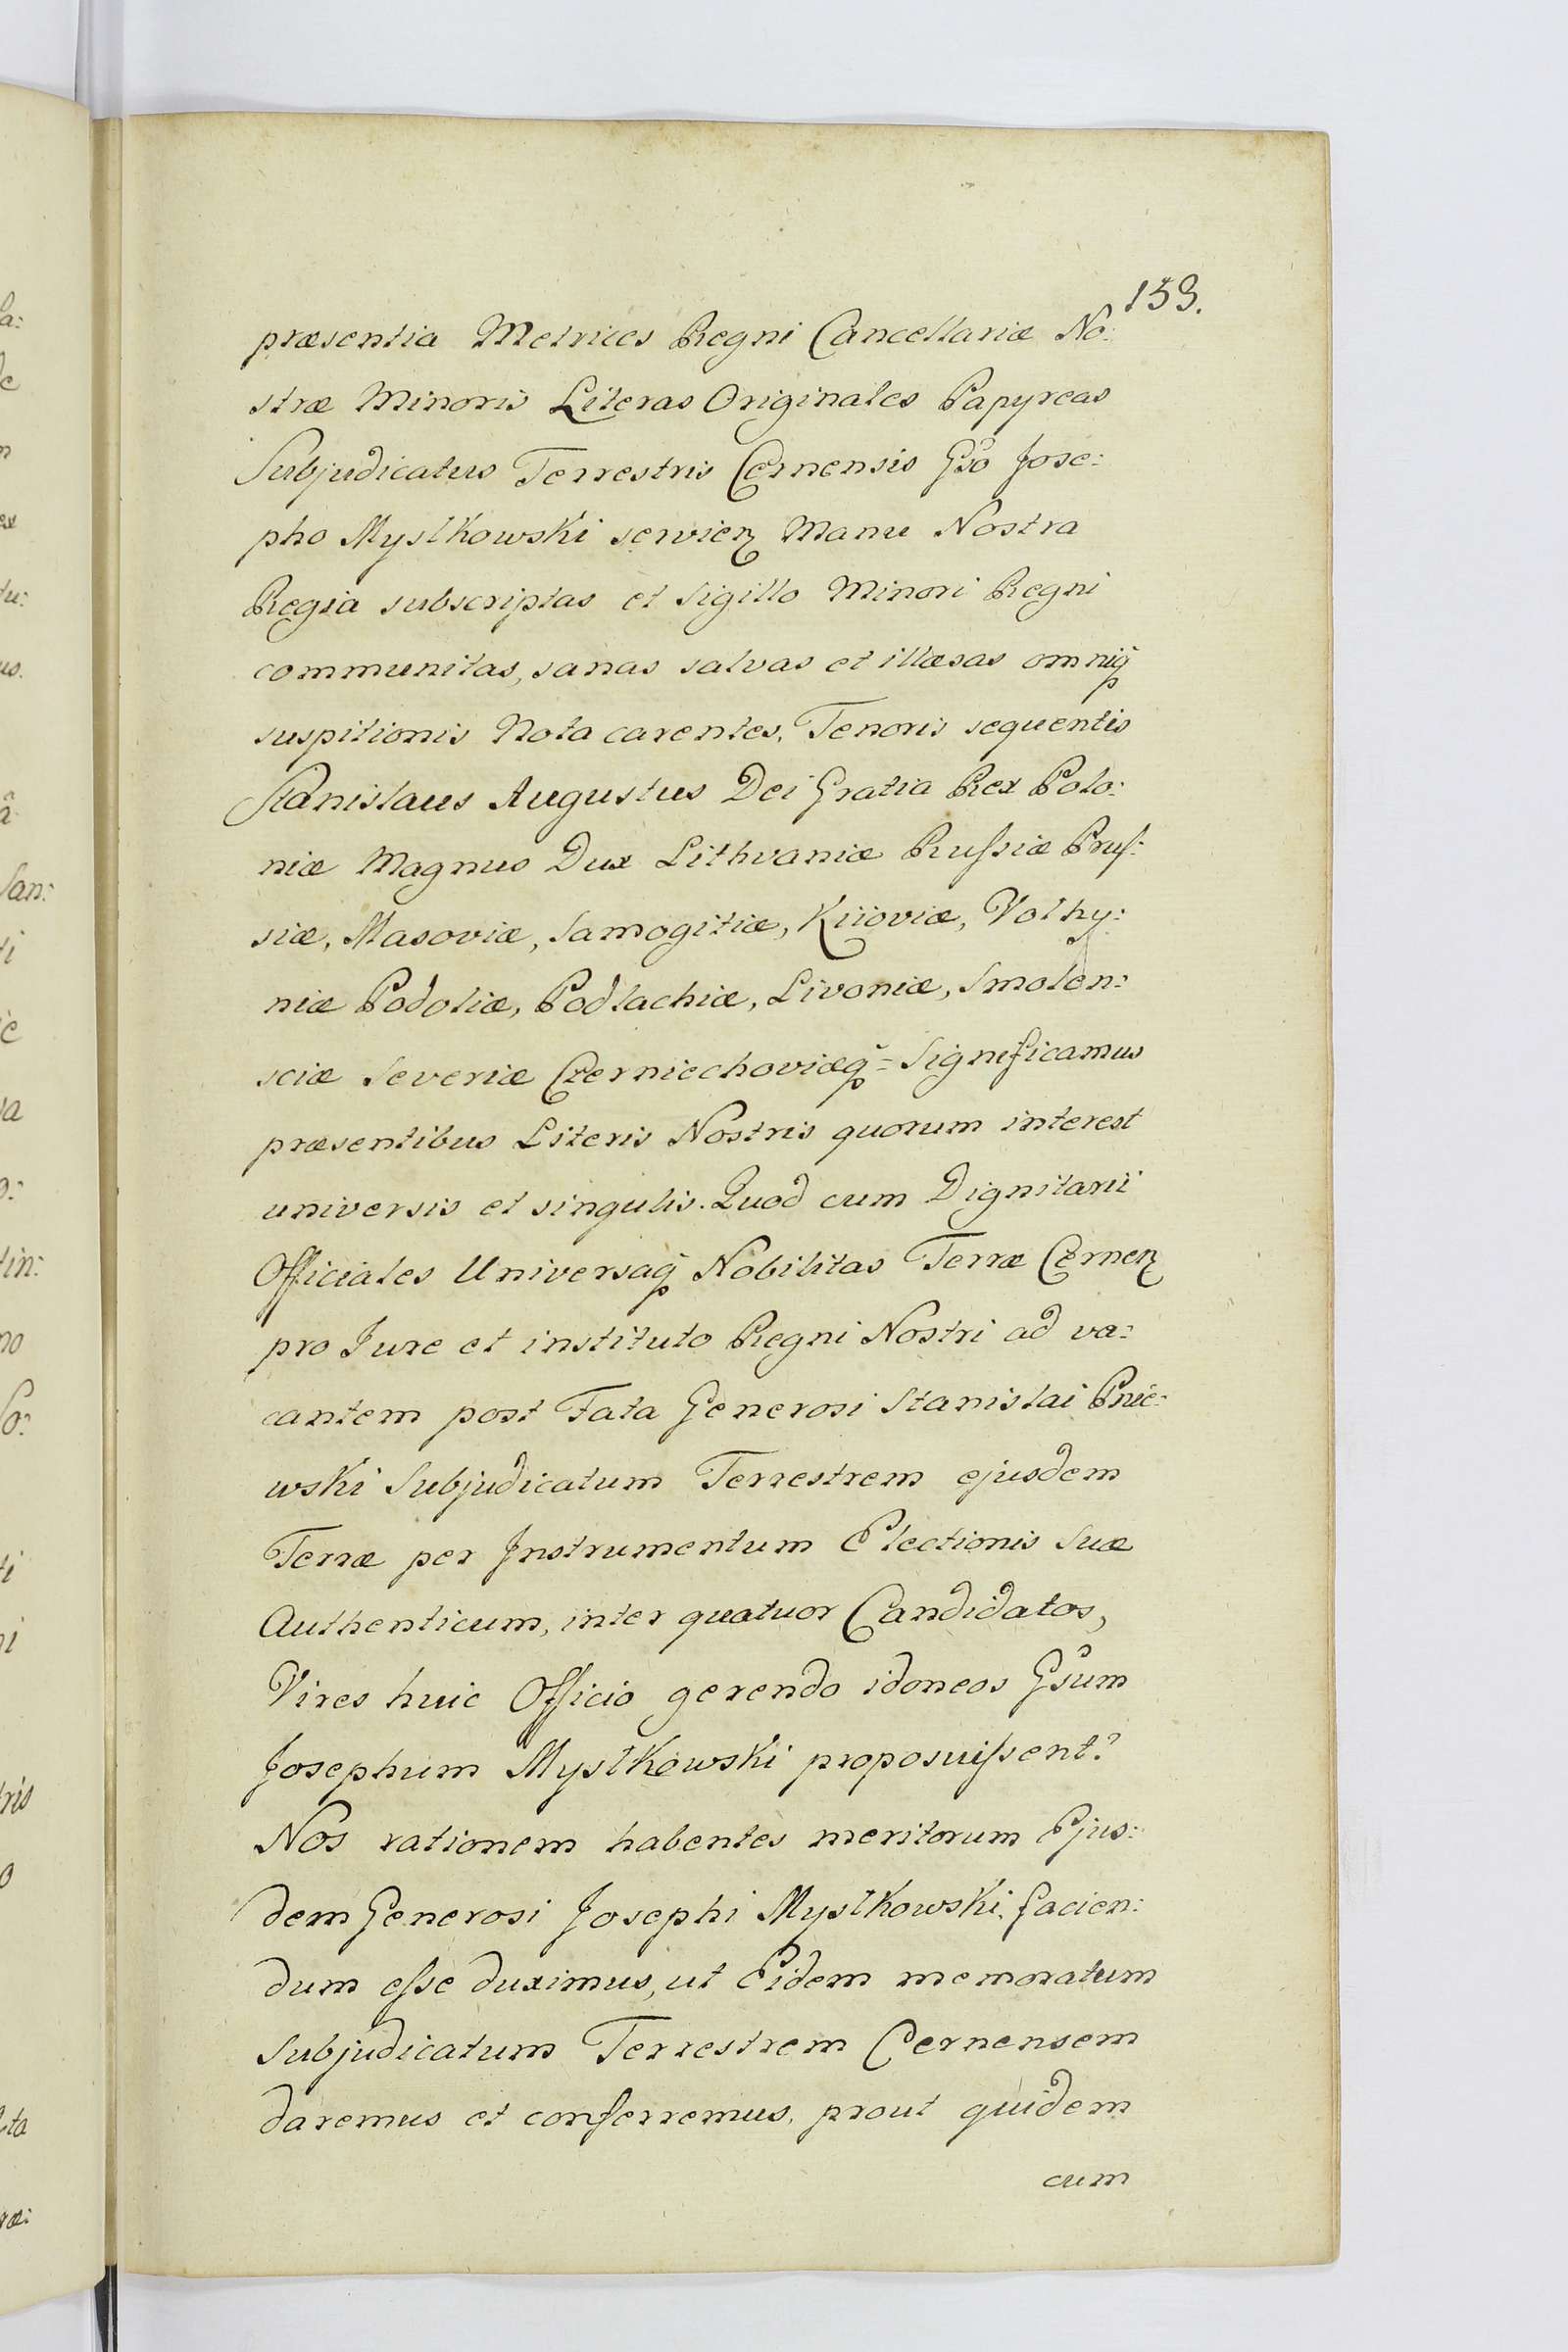 153.
præsentia Metrices Regni Cancellariæ No:
stræ Minoris Literas Originales Papyreas
Subjudicatus Terrestris Cernensis Gso Jose:
pho Mystkowski servien Manu Nostra
Regia subscriptas et Sigillo Minori Regni
communitas, sanas salvas et illæsas omniq
suspitionis Nota carentes. Tenoris sequentis
Stanislaus Augustus Dei Gratia Rex Polo:
niæ Magnus Dux Lithvaniæ Rufsiæ Pruf:
siæ, Masoviæ, Samogitiæ, Kiioviæ, Volhy:
niæ Podoliæ, Podlachiæ, Livoniæ, Smolen:
sciæ Severiæ Czerniechoviæq = Significamus
præsentibus Literis Nostris quorum interest
universis et singulis. Quod cum Dignitarii
Officiales Universaq Nobilitas Terræ Cernen
pro Jure et instituto Regni Nostri ad va:
cantem post Fata Generosi Stanislai Pnie:
wski Subjudicatum Terrestrem ejusdem
Terræ per Instrumentum Electionis Suæ
Authenticum, inter quatuor Candidatos,
Vires huic Officio gerendo idoneos Gsum
Josephum Mystkowski proposuifsent?
Nos rationem habentes meritorum Ejus:
dem Generosi Josephi Mystkowski, facien:
dum efse duximus, ut Eidem memoratum
Subjudicatum Terrestrem Cernensem
daremus et conferremus, prout quidem
cum